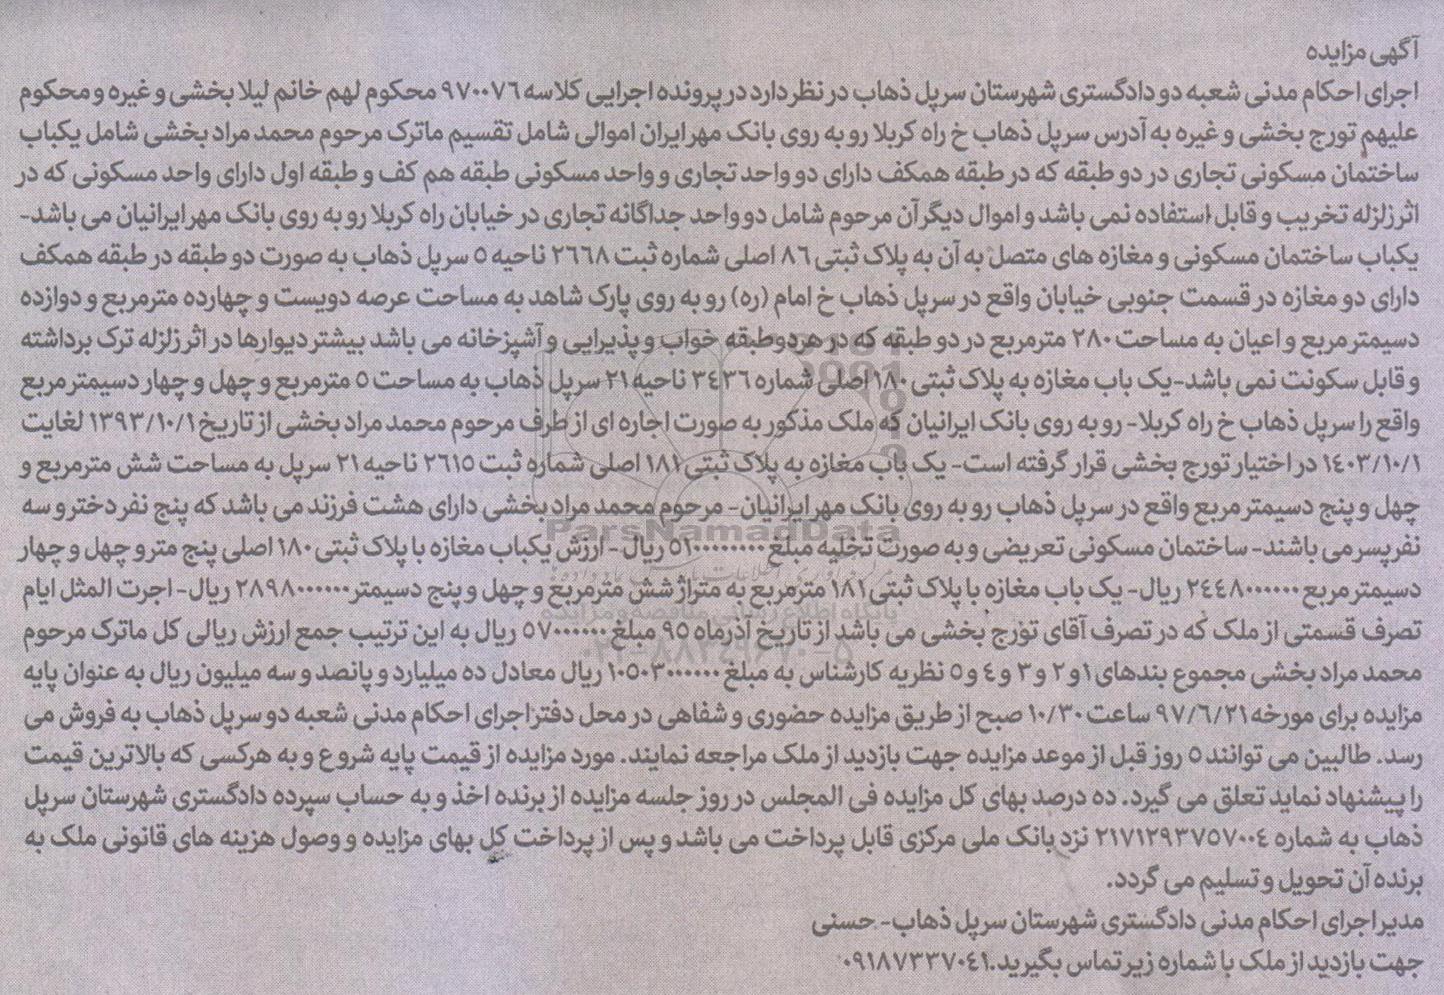 آگهی مزایده
اجرای احکام مدنی شعبه دو دادگستری شهرستان سرپل ذهاب در نظر دارد در پرونده اجرایی کلاسه ۹۷۰۰۷۶ محکوم لهم خانم لیلا بخشی و غیره و محکوم
علیهم تورج بخشی و غیره به آدرس سرپل ذهاب خ راه کربلا رو به روی بانک مهر ایران اموالی شامل تقسیم ماترک مرحوم محمد مراد بخشی شامل یکباب
ساختمان مسکونی تجاری در دو طبقه که در طبقه همکف دارای دو واحد تجاری و واحد مسکونی طبقه هم کف و طبقه اول دارای واحد مسکونی که در
اثر زلزله تخریب و قابل استفاده نمی باشد و اموال دیگر آن مرحوم شامل دو واحد جداگانه تجاری در خیابان راه کربلا رو به روی بانک مهر ایرانیان می باشد-
یکباب ساختمان مسکونی و مغازه های متصل به آن به پلاک ثبتی ۸۶ اصلی شماره ثبت ۲۶۶۸ ناحیه ۵ سرپل ذهاب به صورت دو طبقه در طبقه همکف
دارای دو مغازه در قسمت جنوبی خیابان واقع در سرپل ذهاب خ امام (ره) رو به روی پارک شاهد به مساحت عرصه دویست و چهارده مترمربع و دوازده
دسیمتر مربع و اعیان به مساحت ۲۸۰ مترمربع در دو طبقه که در هردو طبقه خواب و پذیرایی و آشپزخانه می باشد بیشتر دیوارها در اثر زلزله ترک برداشته
و قابل سکونت نمی باشد-یک باب مغازه به پلاک ثبتی ۱۸۰ اصلی شماره ۳۴۳۶ ناحیه ۲۱ سرپل ذهاب به مساحت ۵ مترمربع و چهل و چهار دسیمتر مربع
واقع را سرپل ذهاب خ راه کربلا- رو به روی بانک ایرانیان که ملک مذکور به صورت اجاره ای از طرف مرحوم محمد مراد بخشی از تاریخ ۱۳۹۳/۱۰/۱ لغایت
۱۴۰۳/۱۰/۱ در اختیار تورج بخشی قرار گرفته است- یک باب مغازه به پلاک ثبتی ۱۸۱ اصلی شماره ثبت ۲۶۱۵ ناحیه ۲۱ سرپل به مساحت شش مترمربع و
چهل و پنج دسیمتر مربع واقع در سرپل ذهاب رو به روی بانک مهر ایرانیان- مرحوم محمد مراد بخشی دارای هشت فرزند می باشد که پنج نفر دختر و سه
نفر پسر می باشند- ساختمان مسکونی تعریضی و به صورت تخلیه مبلغ ۵۱۰۰۰۰۰۰۰۰ ریال - ارزش یکباب مغازه با پلاک ثبتی ۱۸۰ اصلی پنج متر و چهل و چهار
دسیمتر مربع ۲۴۴۸۰۰۰۰۰۰ ریال- یک باب مغازه با پلاک ثبتی ۱۸۱ مترمربع به متراژ شش مترمربع و چهل و پنج دسیمتر ۲۸۹۸۰۰۰۰۰۰ ریال- اجرت المثل ایام
تصرف قسمتی از ملک که در تصرف آقای تورج بخشی می باشد از تاریخ آذرماه ۹۵ مبلغ ۵۷۰۰۰۰۰۰ ریال به این ترتیب جمع ارزش ریالی کل ماترک مرحوم
محمد مراد بخشی مجموع بندهای ۱و ۲ و ۳ و ۴ و ۵ نظریه کارشناس به مبلغ ۱۰۵۰۳۰۰۰۰۰۰ ریال معادل ده میلیارد و پانصد و سه میلیون ریال به عنوان پایه
مزایده برای مورخه ۹۷/۶/۲۱ ساعت ۱۰/۳۰ صبح از طریق مزایده حضوری و شفاهی در محل دفتر اجرای احکام مدنی شعبه دو سرپل ذهاب به فروش می
رسد. طالبین می توانند ۵ روز قبل از موعد مزایده جهت بازدید از ملک مراجعه نمایند. مورد مزایده از قیمت پایه شروع و به هرکسی که بالاترین قیمت
را پیشنهاد نماید تعلق می گیرد. ده درصد بهای کل مزایده فی المجلس در روز جلسه مزایده از برنده اخذ و به حساب سپرده دادگستری شهرستان سرپل
ذهاب به شماره ۲۱۷۱۲۹۳۷۵۷۰۰۴ نزد بانک ملی مرکزی قابل پرداخت می باشد و پس از پرداخت کل بهای مزایده و وصول هزینه های قانونی ملک به
برنده آن تحویل و تسلیم می گردد.
مدیر اجرای احکام مدنی دادگستری شهرستان سرپل ذهاب- حسنی
جهت بازدید از ملک با شماره زیر تماس بگیرید.۰۹۱۸۷۳۳۷۰۴۱
ParsNamadData
پایگاه اطلاع رسانی مناقصه و مزایده
۰۲۱-۸۸۳۴۹۶۷۰-۵